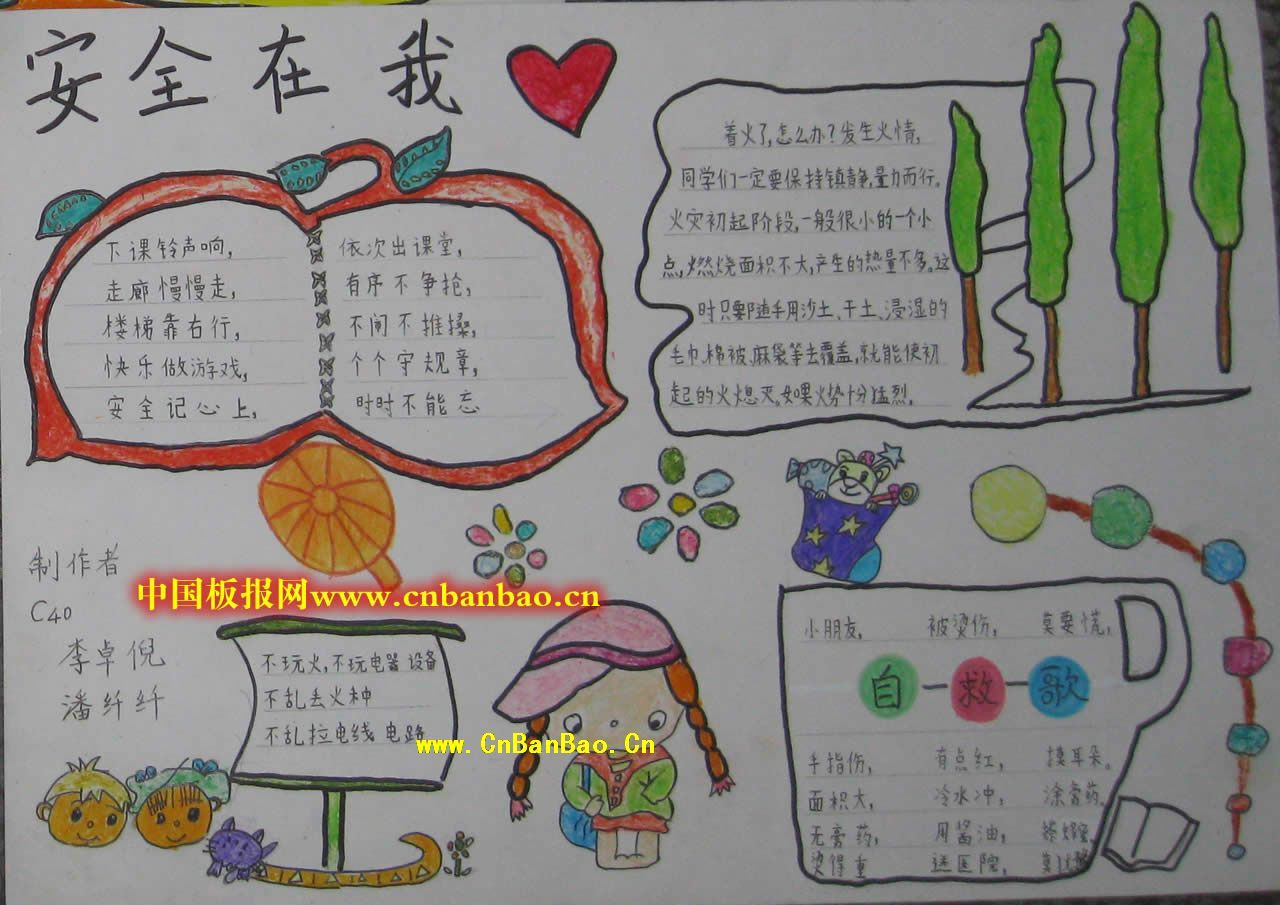 安全在我
下课铃声响,
走廊慢慢走,
楼梯靠右行,
快乐做游戏,
安全记心上,
依次出课堂,
有序不争抢,
不闹不推搡,
个个守规章,
时时不能忘
着火了,怎么办?发生火情,
同学们一定要保持镇静,量力而行。
火灾初起阶段,一般很小的一个小
点,燃烧面积不大,产生的热量不多。这
时只要随手用沙土、干土、浸湿的
毛巾、棉被、麻袋等去覆盖,就能使初
起的火熄灭。如果火势十分猛烈。
制作者
C40
李卓倪
潘纤纤
中国板报网www.cnbanbao.cn
不玩火,不玩电器设备
不乱丢火种
不乱拉电线电路
www.CnBanBao.Cn
小朋友, 被烫伤, 莫要慌,
自—救—歌
手指伤, 有点红, 摸耳朵。
面积大, 冷水冲, 涂膏药。
无膏药, 用酱油,
烫得重 送医院,